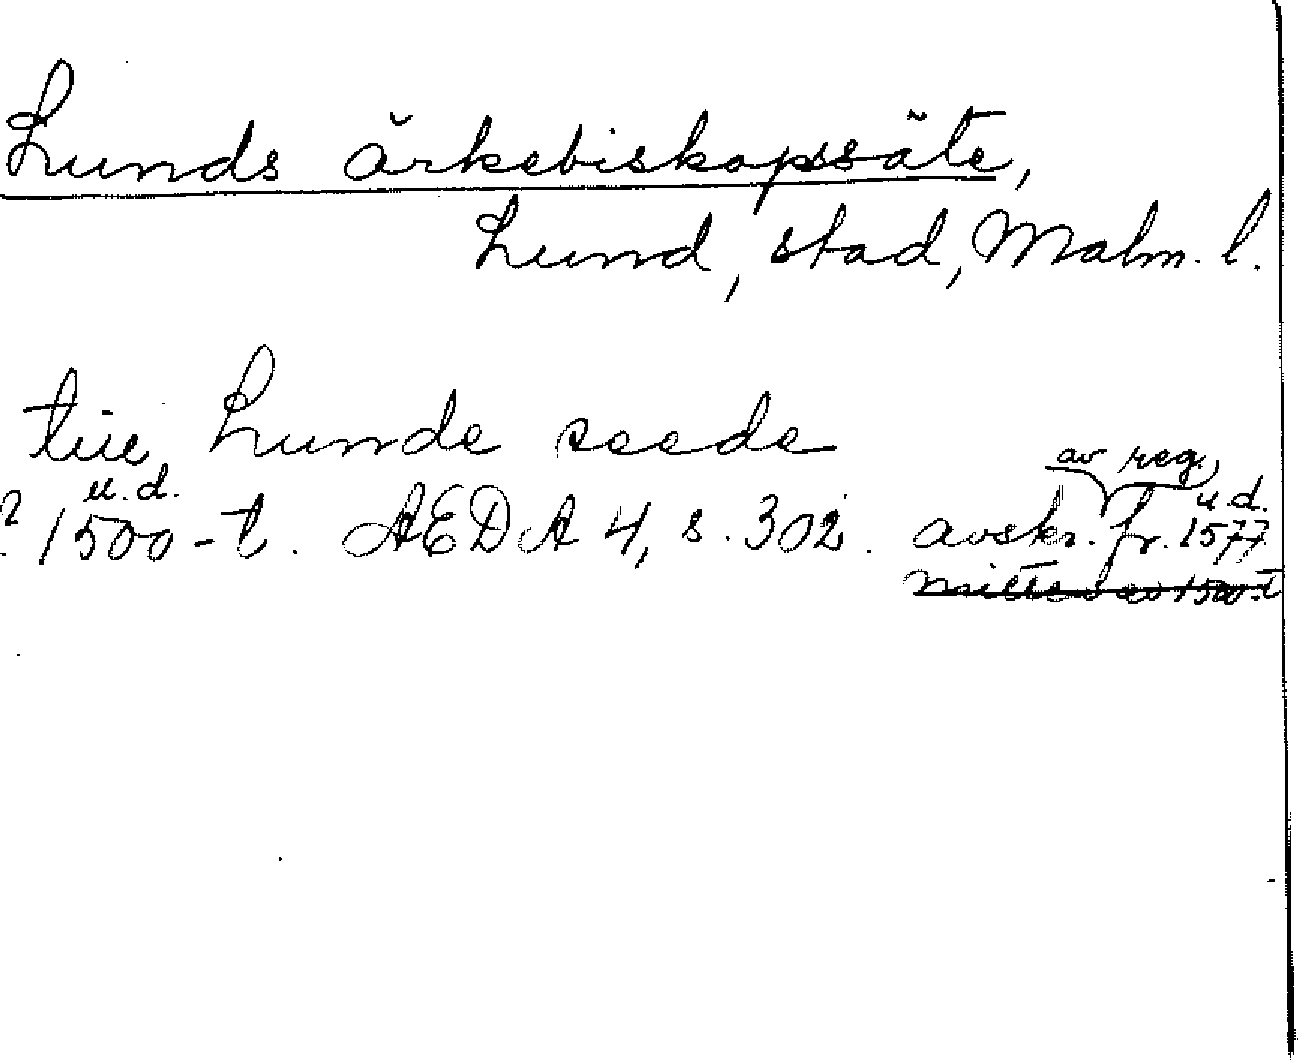 Lunds ärkebiskopssäte,
Lund, stad, Malm. l.
tiie Lunde seede
av reg.
u.d.
? 1500-t. AEDA 4, s. 302. avskr. fr. 1577
u.d.
mitten av 1500-t